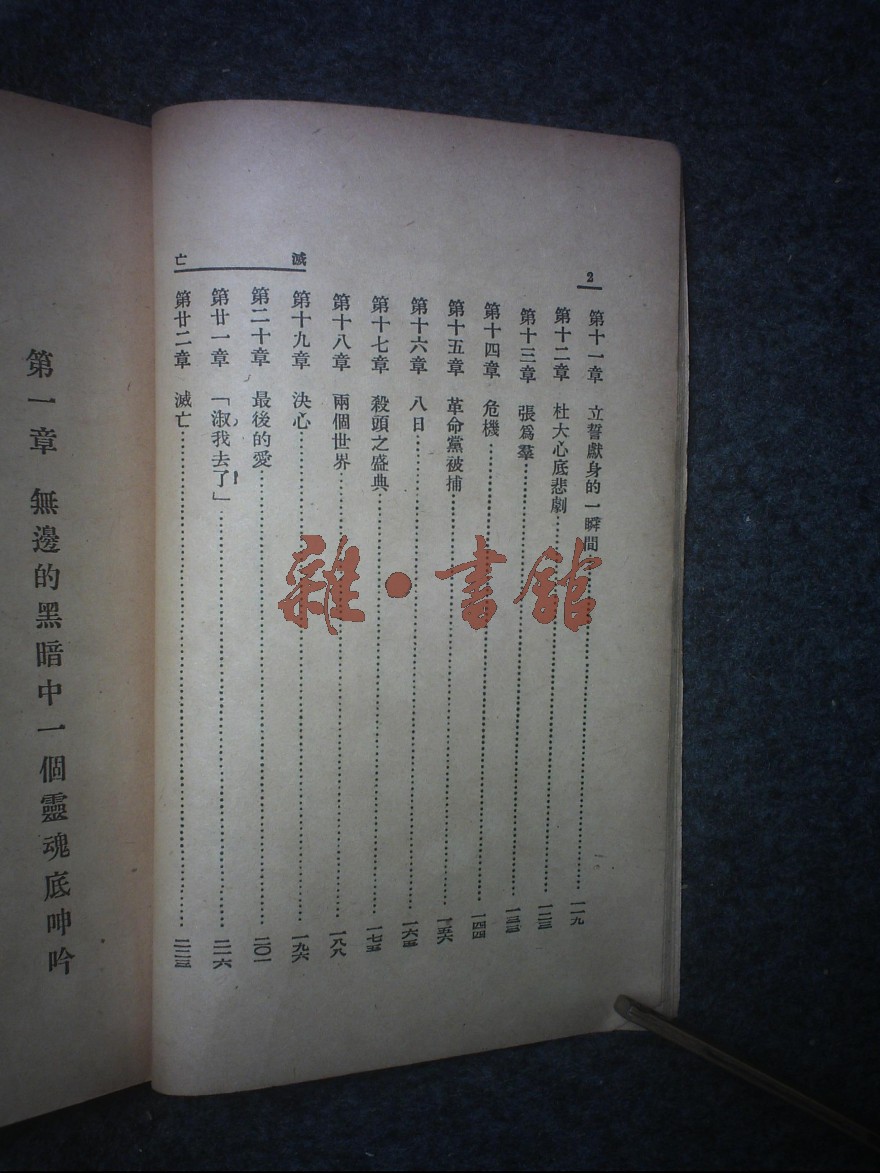 2
第十一章　立誓獻身的一瞬間……一一九
第十二章　杜大心底悲劇……一二三
第十三章　張爲羣……一三三
第十四章　危機……一四四
第十五章　革命黨被捕……一五六
第十六章　八日……一六五
第十七章　殺頭之盛典……一七五
第十八章　兩個世界……一八八
第十九章　決心……一九六
第二十章　最後的愛……二〇一
第廿一章　「淑，我去了！」……二一六
第廿二章　滅亡……二二三
滅亡
第一章　無邊的黑暗中一個靈魂底呻吟
雜·書館